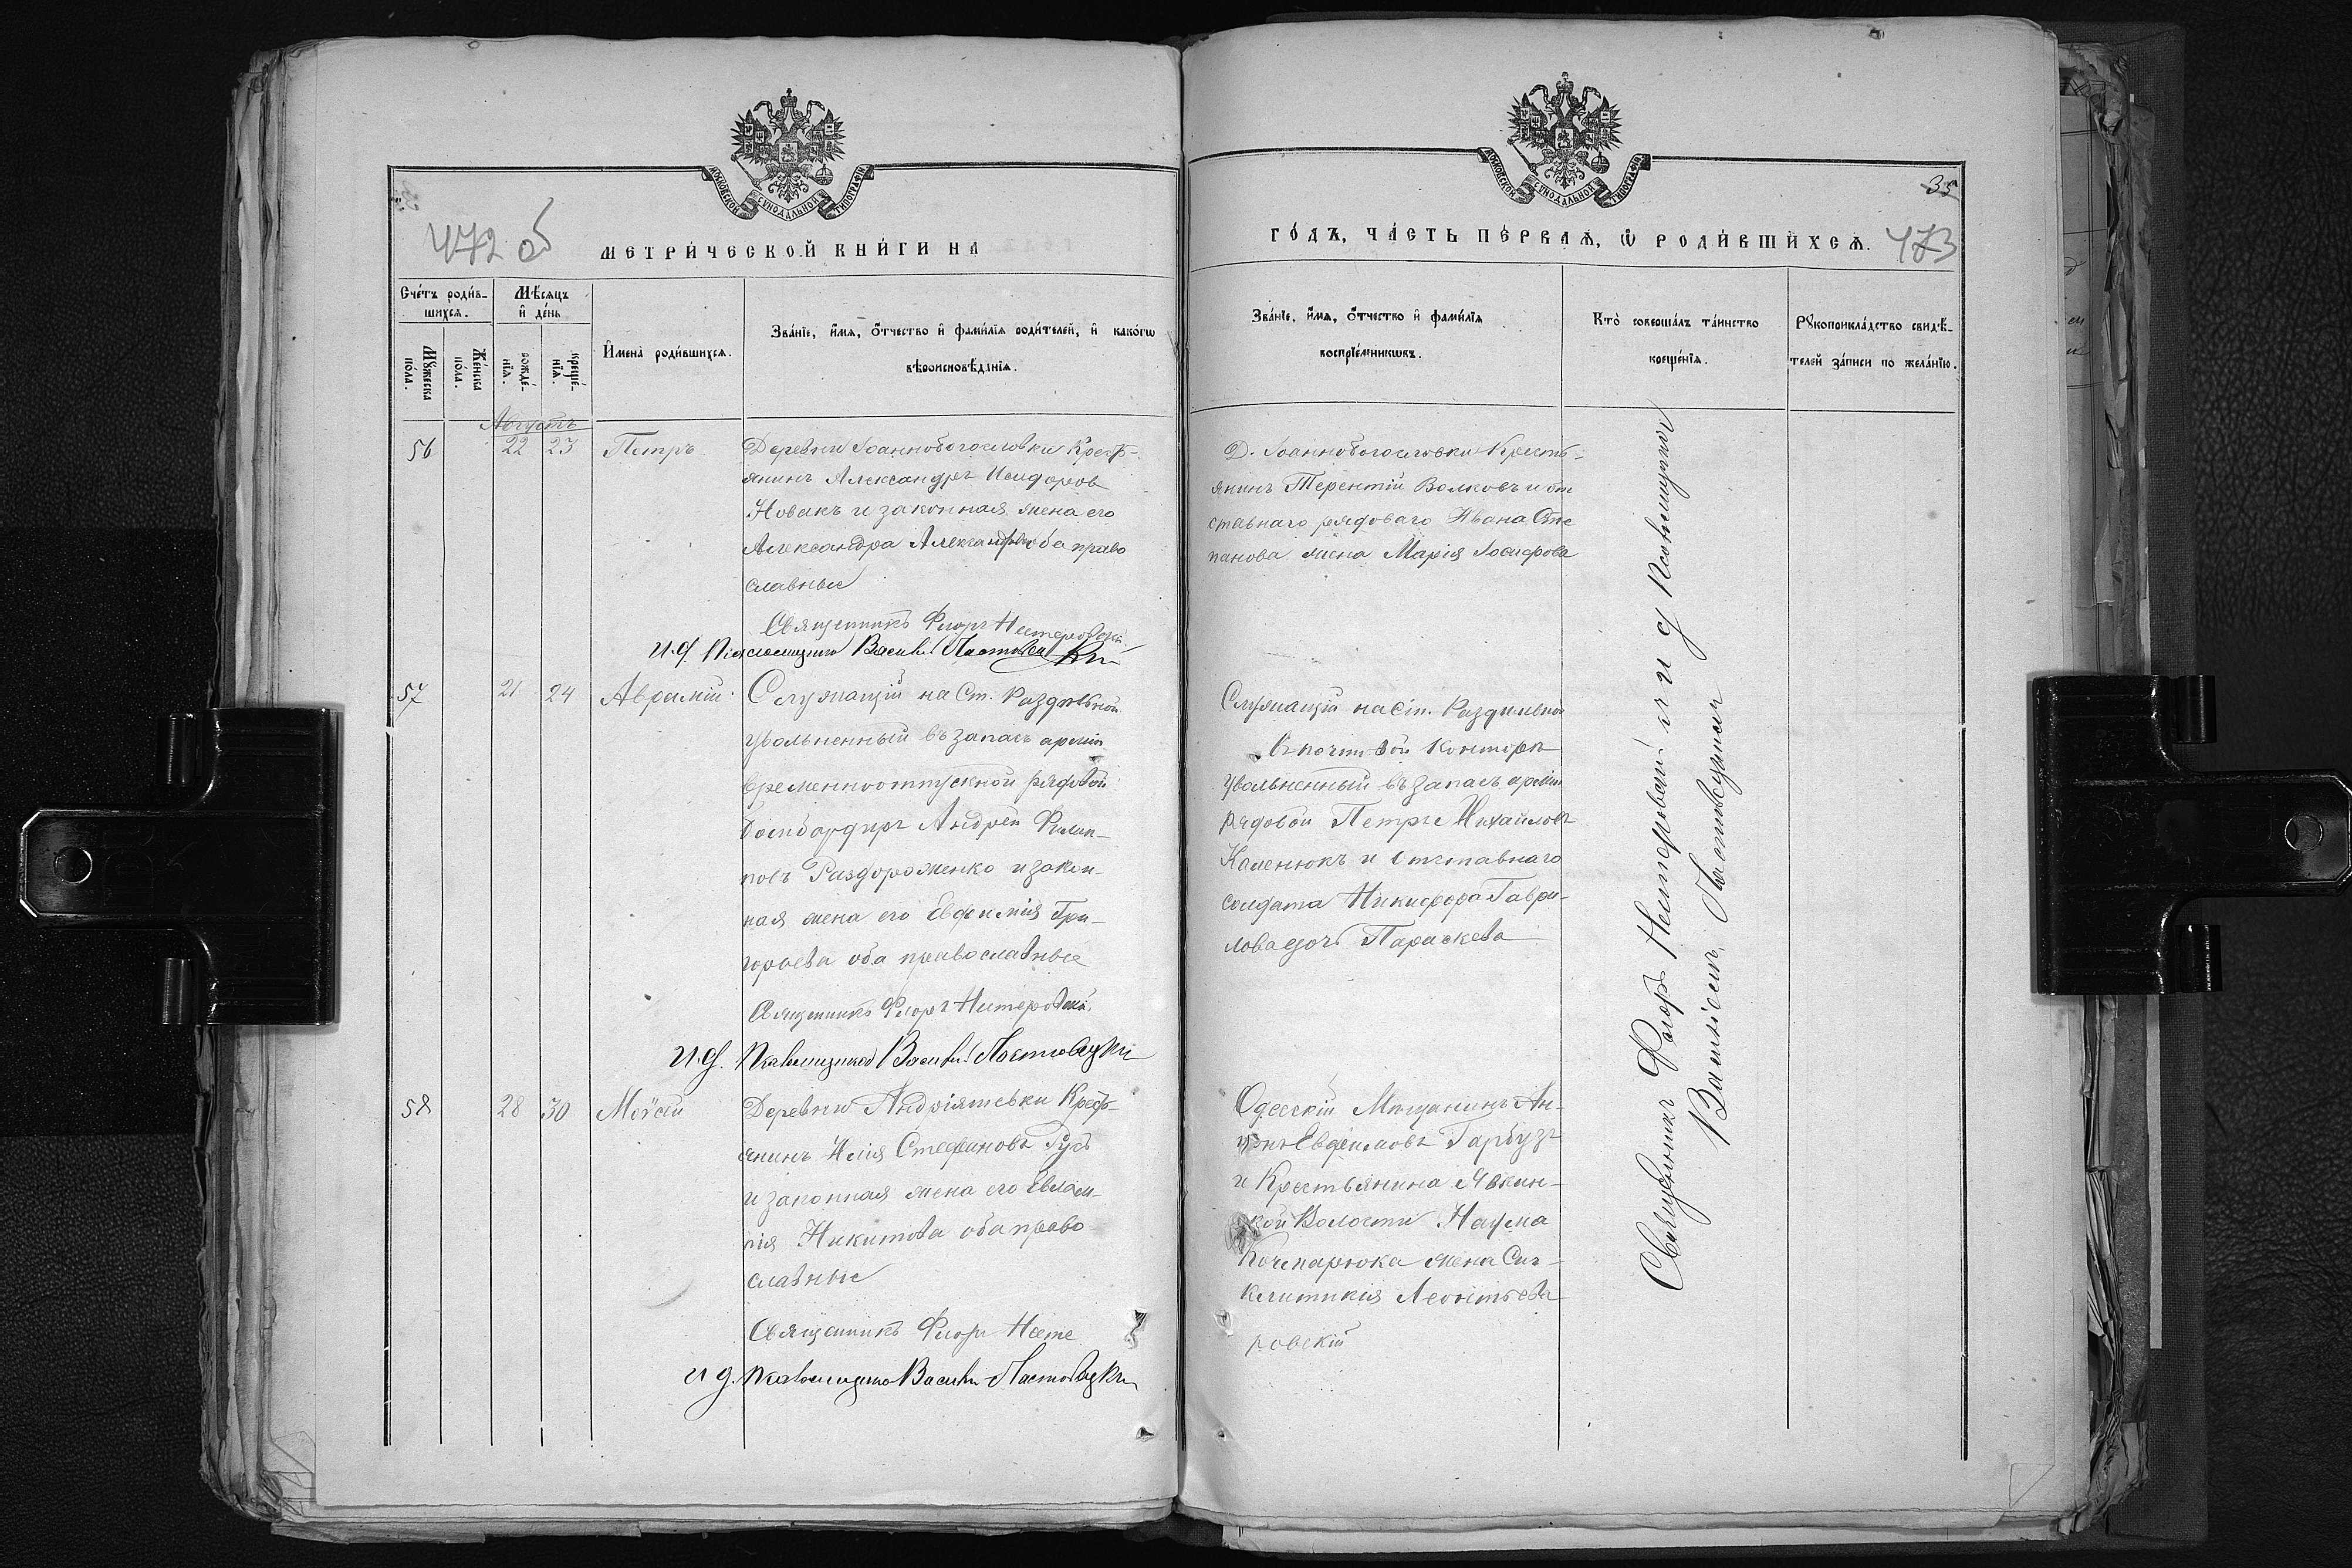 МОСКОВСКОЙ СѴНОДАЛЬНОЙ ТИПОГРАФІИ
472 об
МЕТРИ́ЧЕСКОЙ КНИ́ГИ НА
Сче́тъ роди́в-
шихсѧ.
Мѣ́сѧцъ
и҆ де́нь
Мꙋ́жеска
по́ла.
Же́нска
по́ла.
рожде́-
нїѧ.
креще́-
нїѧ.
И҆мена̀ роди́вшихсѧ.
Зва́нїе, и҆́мѧ, ѻ҆́тчество и҆ фами́лїѧ роди́телей, и҆ како́гѡ
вѣроисповѣ́данїѧ.
Августъ
56 22 23 Петръ
Деревни Іоаннобогословки Крест-
янинъ Александръ Исидоров
Новакъ и законная жена его
Александра Александрова оба право
славные
Священникъ Флоръ Нестеровскій
И.д. Псаломщика Василій Ластовецкій
57 21 24 Аврамій
Служащій на Ст. Раздѣльной
уволненный въ запасъ арміи
временноотпускной рядовой
бомбардиръ Андрей Филип-
повъ Раздороженко и закон-
ная жена его Евфимія Гри-
горьева оба православные
Священникъ Флоръ Нестеровскій
И.д. Псаломщика Василій Ластовецкій
58 28 30 Моѵсей
Деревни Андріяшевки Крест-
янинъ Илія Стефановъ Гусь
и законная жена его Евлам-
пія Никитова оба право
славные
Священникъ Флоръ Несте
И д. Псаломщика Василій Ластовецкій
МОСКОВСКОЙ СѴНОДАЛЬНОЙ ТИПОГРАФІИ
35
ГО́ДЪ, ЧА́СТЬ ПЕ́РВАѦ, Ѽ РОДИ́ВШИХСѦ.
473
Зва́нїе, и҆́мѧ, ѻ҆́тчество и҆ фами́лїѧ
воспрїе́мникѡвъ.
Кто̀ соверша́лъ та́инство
креще́нїѧ.
Рꙋкоприкла́дство свидѣ́-
телей за́писи по жела́нїю.
Д. Іоаннобогословки Кресть-
янинъ Терентій Волковъ и от
ставнаго рядоваго Ивана Сте
панова жена Марія Іосифова
Служащій на Ст. Раздѣльной
въ почтовой конторѣ
уволненный въ запасъ арміи
рядовой Петръ Михайловъ
Каменюкъ и отставнаго
солдата Никифора Гаври-
лова дочь Параскева
Одесскій Мѣщанинъ Ан-
тонъ Евфимовъ Гарбузъ
и Крестьянина Явкин-
ской Волости Наума
Кочепарюка жена Син-
клитикія Леонтьева
ровскій
Священникъ Флоръ Нестеровскій и и д Псаломщика
Василій Ластовецкій